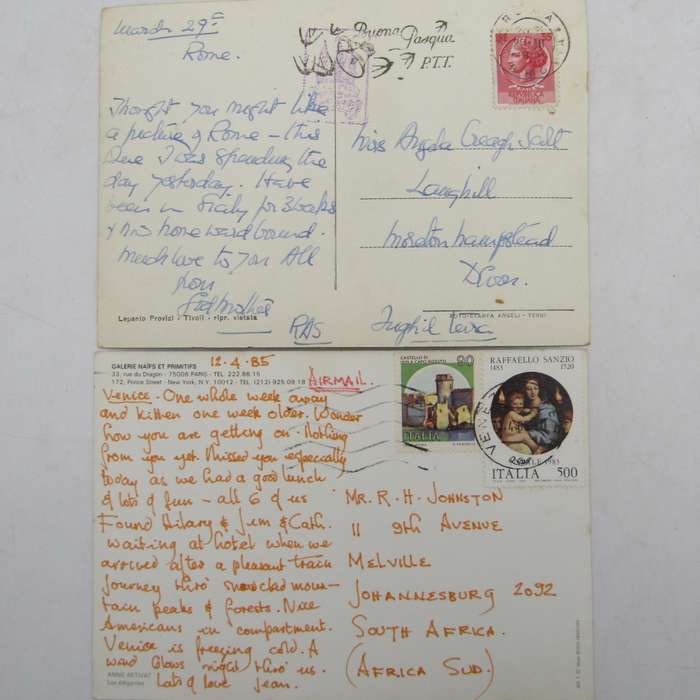 March 29
Rome.
Thought you might like
a picture of Rome - this
one I was spending the
day yesterday. Have
been in Sicily for 3 weeks
& now homeward bound.
Much love to you all
from
Lepanto Provici - Tivoli - ripr. vietata
Buona
Pasqua
P.T.T.
REPUBBLICA
ITALIANA
Miss Angela Creagh Salt
Langhill
Moreton hampstead
Devon.
FOTO-STAMPA ANGELI - TERNI
Inghilterra
GALERIE NAÏFS ET PRIMITIFS
33, rue du Dragon - 75006 PARIS - TEL. 222.86.15
172, Prince Street - New York, N.Y. 10012 - TEL (212) 925.09.18
12.4.85
AIRMAIL.
Venice. One whole week away
and kitten one week older. Wonder
how you are getting on. Nothing
from you yet. Missed you especially
today as we had a good lunch
& lots of fun - all 6 of us
Found Hilary & Jim & Cath.
waiting at hotel when we
arrived after a pleasant train
journey thro' snowclad moun-
tain peaks & forests. Nice
Americans in compartment.
Venice is freezing cold. A
wind blows right thro' us.
Lots of love Jean.
CASTELLO DI
ISOLA CAPO RIZZUTO
90
ITALIA
RAFFAELLO SANZIO
1483 1520
NATALE 1983
ITALIA 500
VENEZ
MR. R. H. JOHNSTON
11 9th AVENUE
MELVILLE
JOHANNESBURG 2092
SOUTH AFRICA.
(AFRICA SUD.)
Les élégantes